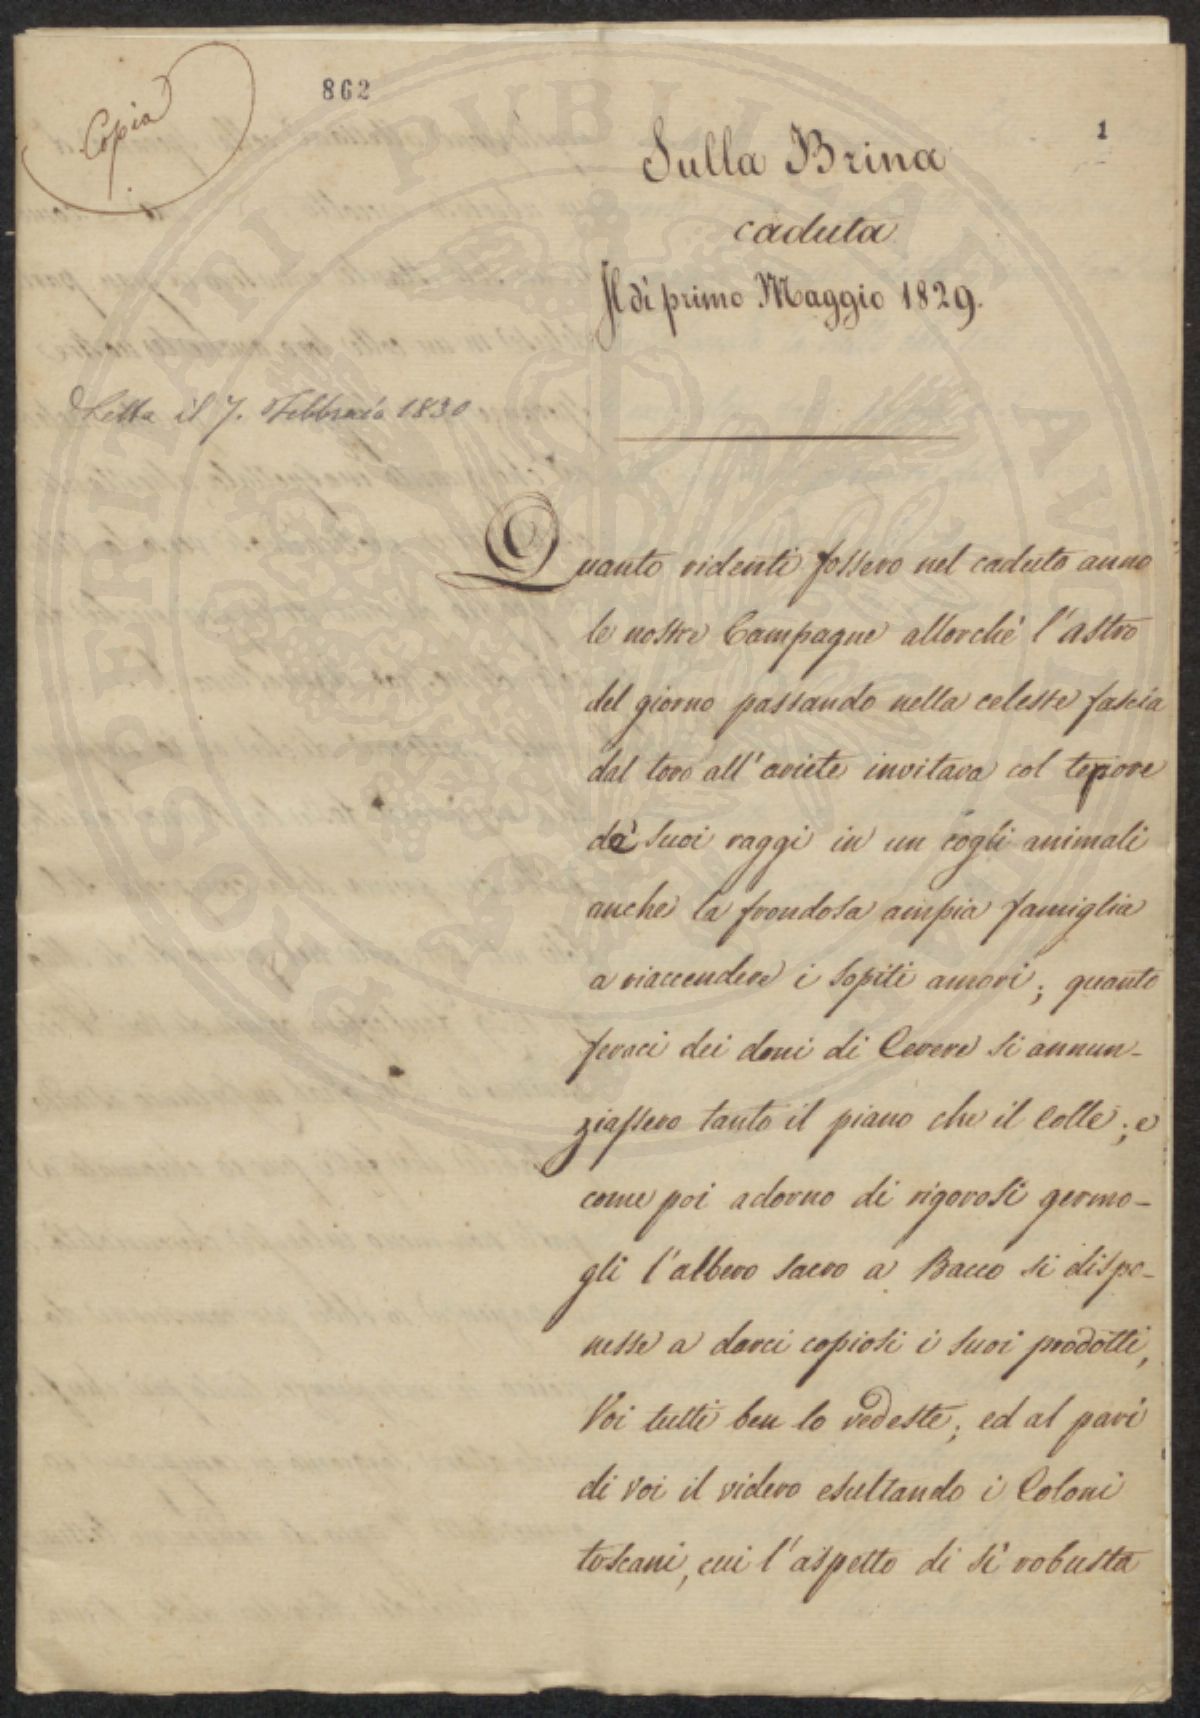 Copia
862
1
Sulla Brina
caduta
Il dì primo Maggio 1829.
Letta il 7. Febbraio 1830
Quanto ridenti fossero nel caduto anno
le nostre Campagne allorchè l'astro
del giorno passando nella celeste fascia
dal toro all'ariete invitava col tepore
de' suoi raggi in un cogli animali
anche la frondosa ampia famiglia
a riaccendere i sopiti amori; quanto
feraci dei doni di Cerere si annun-
ziassero tanto il piano che il Colle; e
come poi adorno di vigorosi germo-
gli l'albero sacro a Bacco si dispo-
nesse a darci copiosi i suoi prodotti,
Voi tutti ben lo vedeste; ed al pari
di Voi il videro esultando i Coloni
toscani, cui l'aspetto di sì robusta